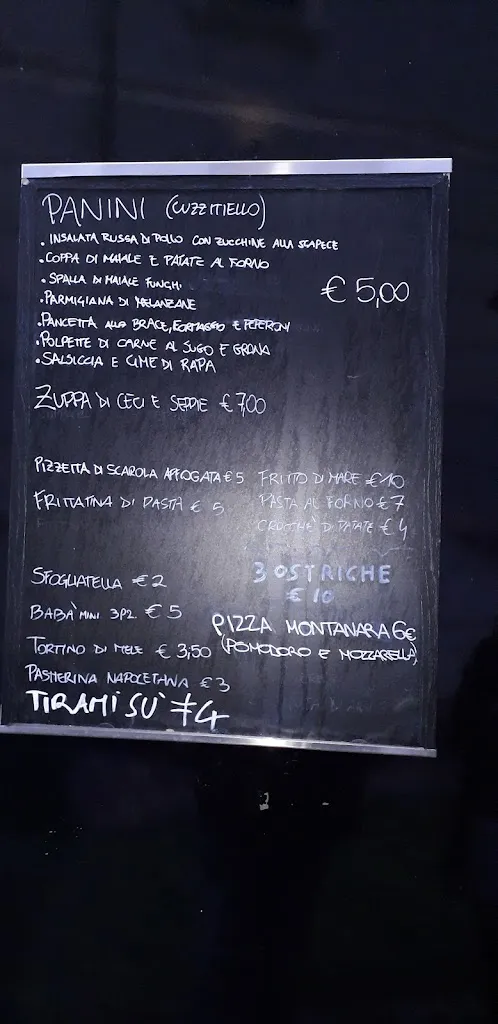 PANINI (CUZZITIELLO)
• INSALATA RUSSA DI POLLO CON ZUCCHINE ALLA SCAPECE
• COPPA DI MAIALE E PATATE AL FORNO
• SPALLA DI MAIALE FUNGHI
€ 5,00
• PARMIGIANA DI MELANZANE
• PANCETTA ALLA BRACE, FORMAGGIO E PEPERONI
• POLPETTE DI CARNE AL SUGO E GRANA
• SALSICCIA E CIME DI RAPA
ZUPPA DI CECI E SEPPIE € 7,00
PIZZETTA DI SCAROLA AFFOGATA € 5
FRITTO DI MARE € 10
FRITTATINA DI PASTA € 5
PASTA AL FORNO € 7
CROCCHÈ DI PATATE € 4
SFOGLIATELLA € 2
3 OSTRICHE
€ 10
BABÀ MINI 3PZ € 5
PIZZA MONTANARA 6€
(POMODORO E MOZZARELLA)
TORTINO DI MELE € 3,50
PASTIERINA NAPOLETANA € 3
TIRAMI SU' €4